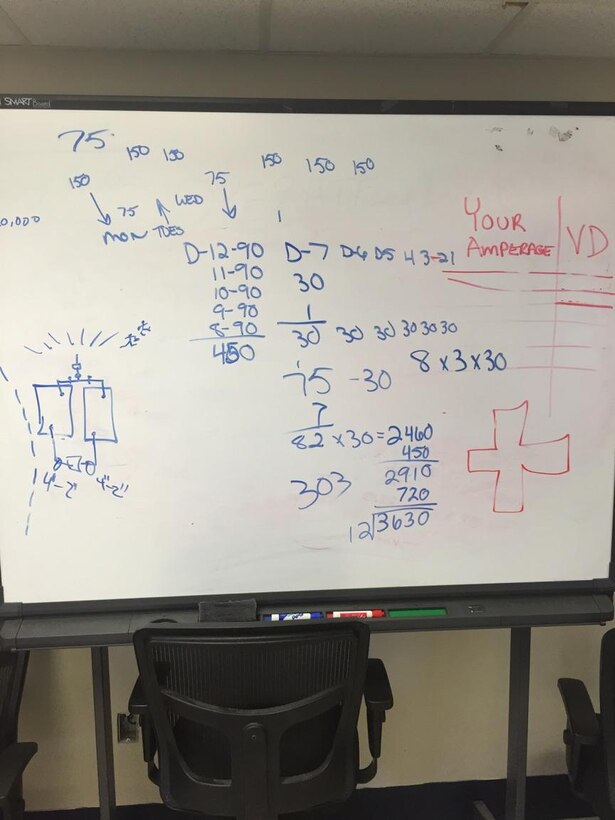 SMART Board
75
150 150
150 150 150
150
75
75
WED
MON TUES
0,000
1
YOUR
AMPERAGE
VD
D-12-90
11-90
10-90
9-90
8-90
450
D-7 D-6 D5 4 3-21
30
1
30 30 30 30 30 30
8 x 3 x 30
75 -30
7
82 x 30 = 2460
450
2910
720
12 3630
303
4'-2" 4'-2"